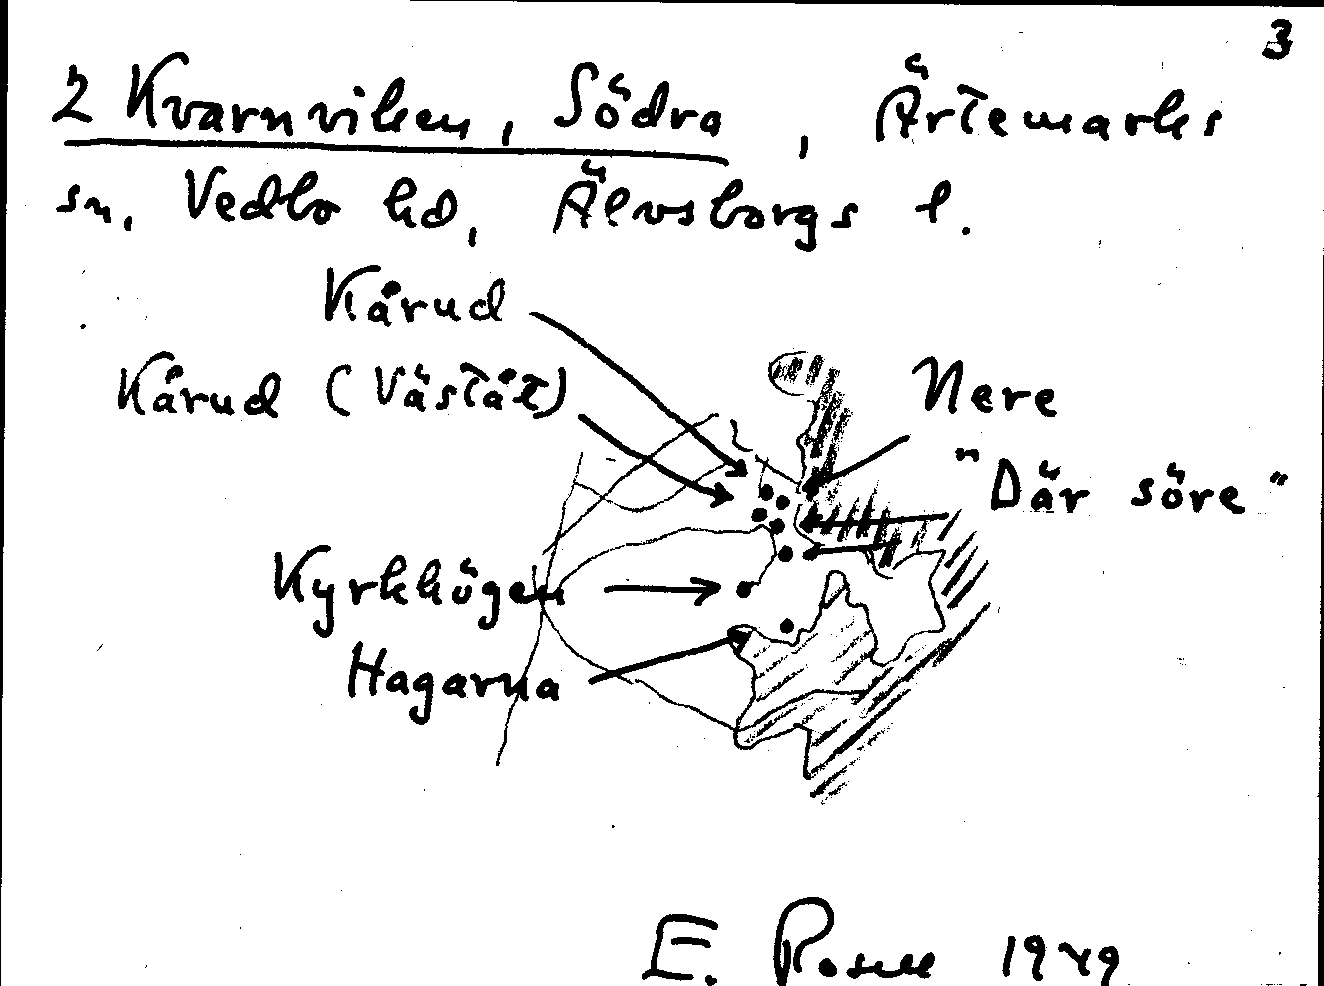 3
2 Kvarnviken, Södra, Ärtemarks
sn, Vedbo hd, Älvsborgs l.
Kårud
Kårud (Väståt)
Nere
"Där söre"
Kyrkhögen
Hagarna
E. Rosell 1949